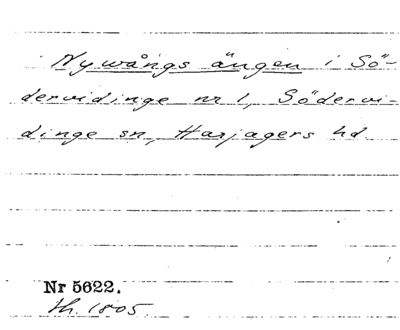 Nywångs ängen i Sö-
dervidinge nr 1, Södervi-
dinge sn, Harjagers hd
Nr 5622.
th. 1805.